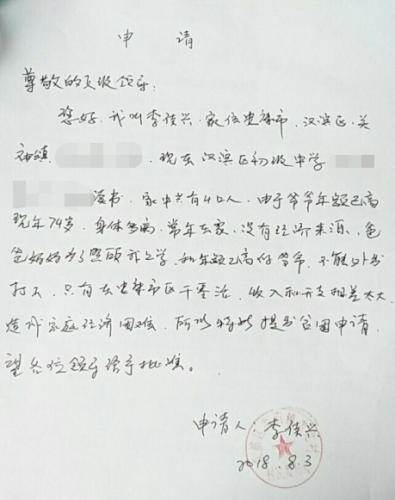 申 请
尊敬的各级领导:
您好,我叫李佳兴,家住安康市,汉滨区,关
初镇,现在汉滨区初级中学
读书,家中共有4口人,由于爷爷年龄已高
现年74岁,身体多病,常年在家,没有经济来源,爸
爸妈妈为了照顾我上学,和年龄已高的爷爷,不能外出
打工,只有在安康市区干零活,收入和开支相差太大
造成家庭经济困难,所以特此提出贫困申请
望各位领导给予批准。
申请人:李佳兴
2018.8.3